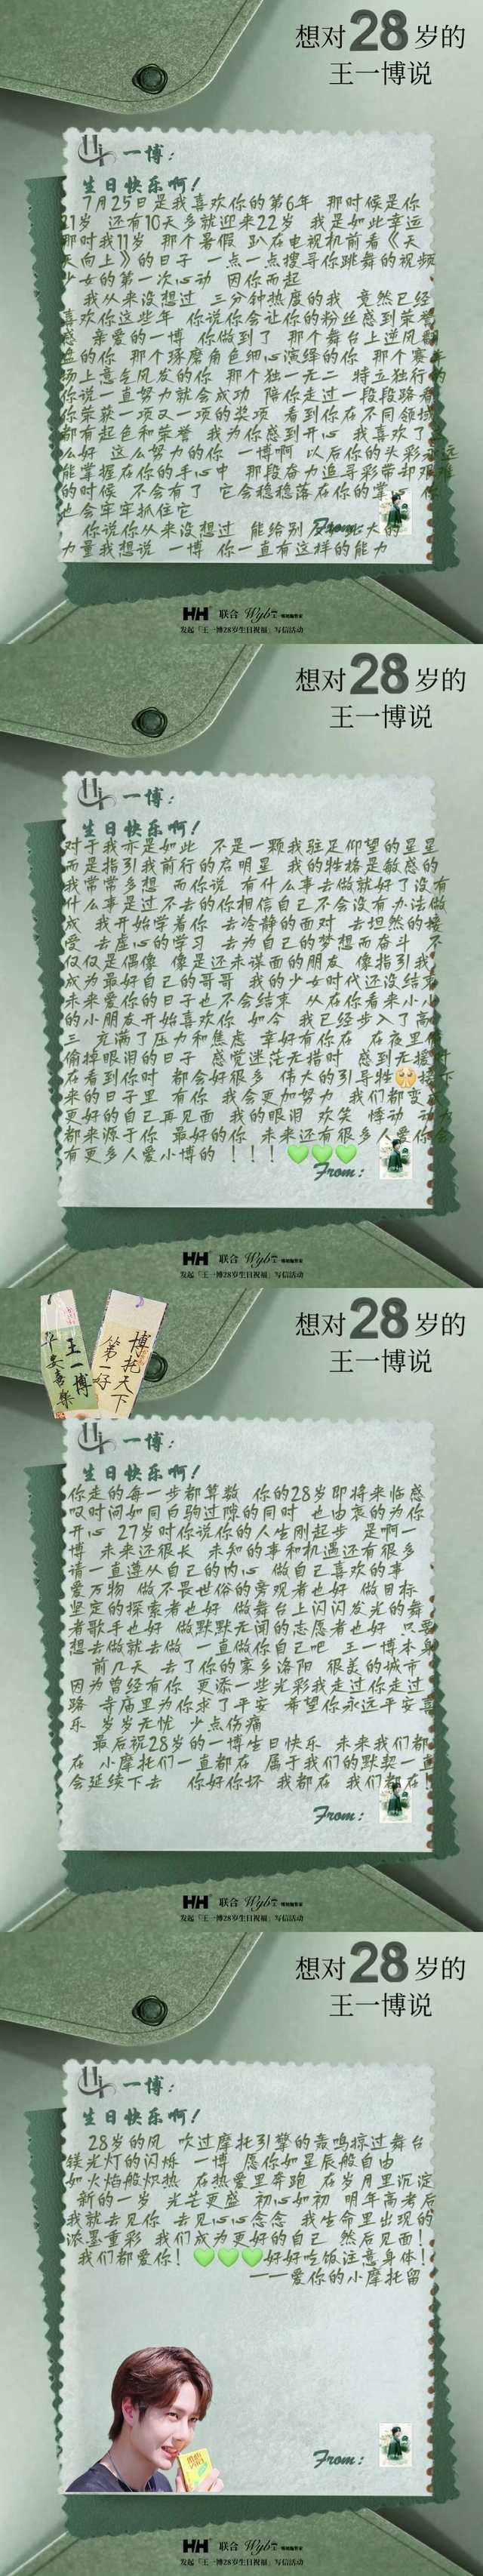 想对28岁的
王一博说
Hi 一博：
生日快乐啊！
7月25日是我喜欢你的第6年 那时候是你
21岁 还有10天多就迎来22岁 我是如此幸运
那时我11岁 那个暑假 趴在电视机前看《天
天向上》的日子 一点一点搜寻你跳舞的视频
少女的第一次心动 因你而起
我从来没想过 三分钟热度的我 竟然已经
喜欢你这些年 你说你会让你的粉丝感到荣誉
感 亲爱的一博 你做到了 那个舞台上逆风翻
盘的你 那个琢磨角色细心演绎的你 那个赛车
场上意气风发的你 那个独一无二 特立独行的
你说一直努力就会成功 陪你走过一段段路看
你荣获一项又一项的奖项 看到你在不同领域
都有起色和荣誉 我为你感到开心 我喜欢了
么好 这么努力的你 一博啊 以后你的头彩永远
能掌握在你的手心中 那段奋力追寻彩带却艰难
的时候 不会有了 它会稳稳落在你的掌心 你
也会牢牢抓住它
你说你从来没想过 能给别 大的
From:
力量我想说 一博 你一直有这样的能力
HH 联合 Wyb
发起「王一博28岁生日祝福」写信活动
想对28岁的
王一博说
Hi 一博：
生日快乐啊！
对于我亦是如此 不是一颗我驻足仰望的星星
而是指引我前行的启明星 我的性格是敏感的
我常常多想 而你说 有什么事去做就好了没有
什么事是过不去的你相信自己不会没有办法做
成 我开始学着你 去冷静的面对 去坦然的接
受 去虚心的学习 去为自己的梦想而奋斗 不
仅仅是偶像 像是还未谋面的朋友 像指引我
成为最好自己的哥哥 我的少女时代还没结束
未来爱你的日子也不会结束 从在你看来小小
的小朋友开始喜欢你 如今 我已经步入了高
三 充满了压力和焦虑 幸好有你在 在夜里偷
偷掉眼泪的日子 感觉迷茫无措时 感到无援时
在看到你时 都会好很多 伟大的引导牲 接下
来的日子里 有你 我会更加努力 我们都变成
更好的自己再见面 我的眼泪 欢笑 悸动 动力
都来源于你 最好的你 未来还有很多人爱你会
有更多人爱小博的 ！！！💚💚💚
From:
HH 联合 Wyb
发起「王一博28岁生日祝福」写信活动
王一博
平安喜乐
博托天下
第一好
想对28岁的
王一博说
Hi 一博：
生日快乐啊！
你走的每一步都算数 你的28岁即将来临感
叹时间如同白驹过隙的同时 也由衷的为你
开心 27岁时你说你的人生刚起步 是啊一
博 未来还很长 未知的事和机遇还有很多
请一直遵从自己的内心 做自己喜欢的事
爱万物 做不畏世俗的旁观者也好 做目标
坚定的探索者也好 做舞台上闪闪发光的舞
者歌手也好 做默默无闻的志愿者也好 只要
想去做就去做 一直做你自己吧 王一博本身
前几天 去了你的家乡洛阳 很美的城市
因为曾经有你 更添一些光彩我走过你走过
路 寺庙里为你求了平安 希望你永远平安喜
乐 岁岁无忧 少点伤痛
最后祝28岁的一博生日快乐 未来我们都
在 小摩托们一直都在 属于我们的默契一直
会延续下去 你好你坏 我都在 我们都在！
From:
HH 联合 Wyb
发起「王一博28岁生日祝福」写信活动
想对28岁的
王一博说
Hi 一博：
生日快乐啊！
28岁的风 吹过摩托引擎的轰鸣掠过舞台
镁光灯的闪烁 一博 愿你如星辰般自由
如火焰般炽热 在热爱里奔跑 在岁月里沉淀
新的一岁 光芒更盛 初心如初 明年高考后
我就去见你 去见心心念念 我生命里出现的
浓墨重彩 我们成为更好的自己 然后见面！
我们都爱你！💚💚💚好好吃饭注意身体！
——爱你的小摩托留
From:
HH 联合 Wyb
发起「王一博28岁生日祝福」写信活动